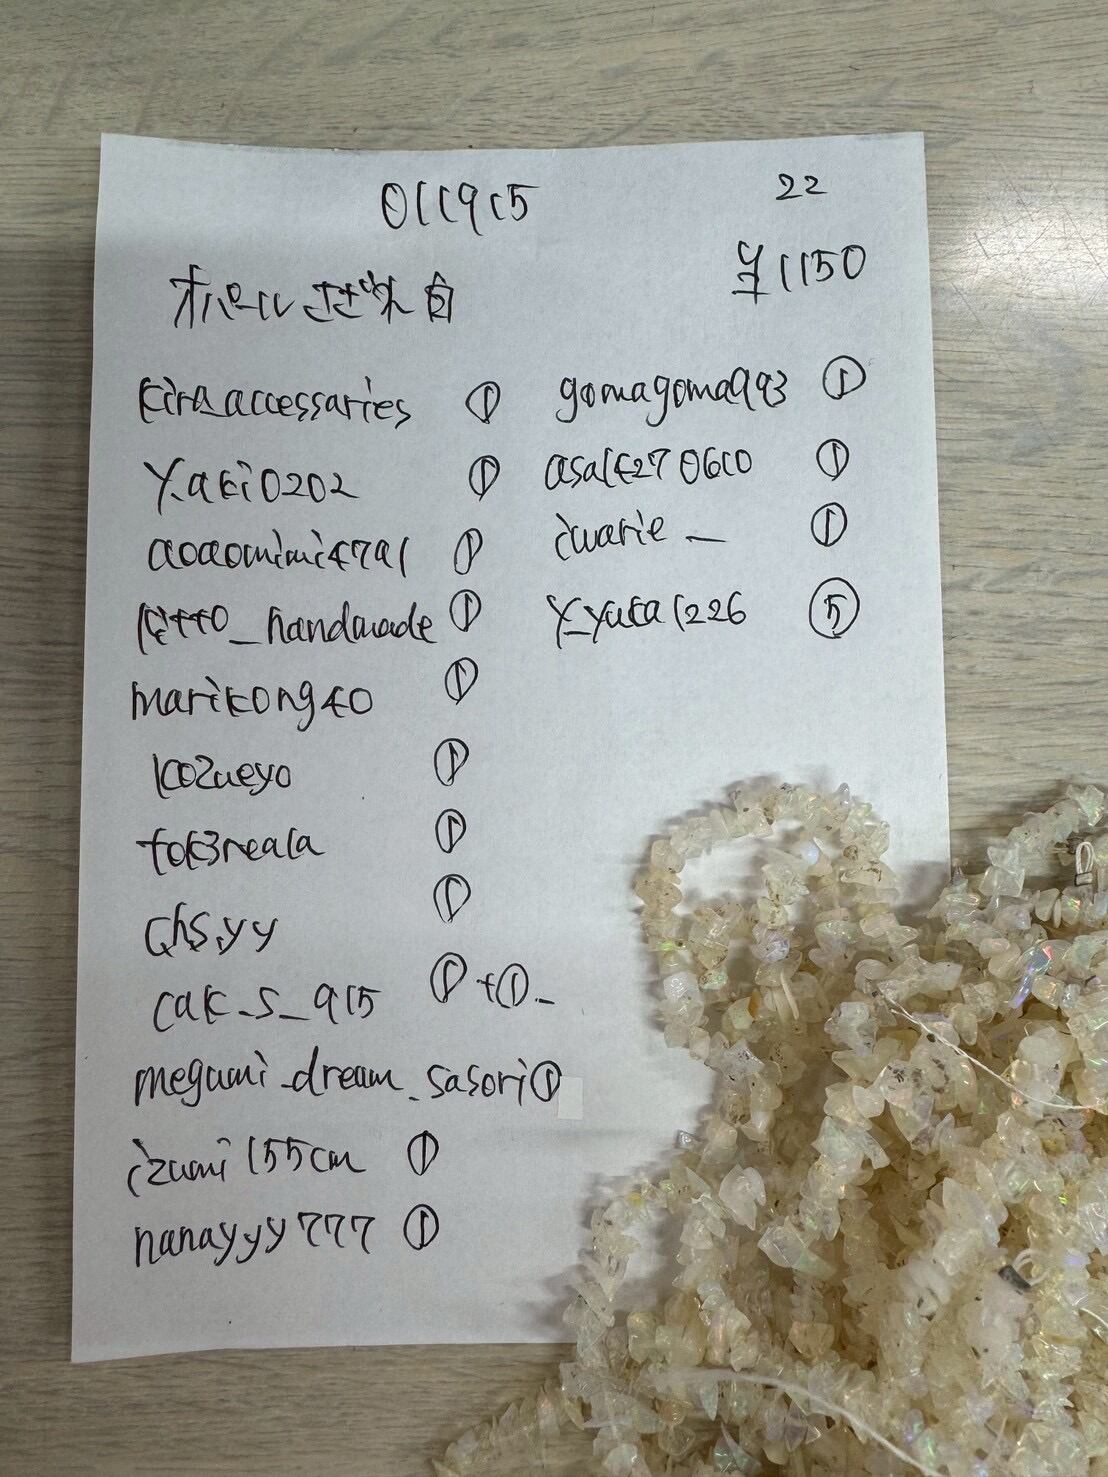 011915
22
¥1150
オパールさざれ白
kira_accessaries ①
y.aki0202 ①
aoaomimi4791 ①
kitto_handmade ①
marikong40 ①
kozueyo ①
tok3reala ①
chs.yy ①
cak_s_915 ①+①
megumi_dream_sasori ①
izumi155cm ①
nanayyy777 ①
gomagoma993 ①
asak270610 ①
iwarie_ ①
y_yuka1226 ⑤